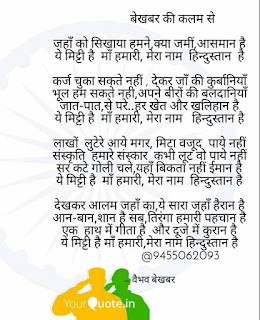 बेखबर की कलम से
जहाँ को सिखाया हमने,क्या जमीं,आसमान है
ये मिट्टी है माँ हमारी, मेरा नाम हिन्दुस्तान है
कर्ज चुका सकते नहीं , देकर जाँ की कुर्बानियाँ
भूल हम सकते नही,अपने बीरों की बलदानियाँ
जात-पात,से परे..हर खेत और खलिहान है
ये मिट्टी है माँ हमारी, मेरा नाम हिन्दुस्तान है
लाखों लुटेरे आये मगर, मिटा वजूद पाये नहीं
संस्कृति हमारे संस्कार कभी लूट वो पाये नहीं
सर कटे गोली चले,यहाँ बिकता नहीं ईमान है
ये मिट्टी है माँ हमारी, मेरा नाम हिन्दुस्तान है
देखकर आलम जहाँ का,ये सारा जहाँ हैरान है
आन-बान,शान है सब,तिरंगा हमारी पहचान है
एक हाथ में गीता है और दूजे में कुरान है
ये मिट्टी है माँ हमारी,मेरा नाम हिन्दुस्तान है
@9455062093
वैभव बेखबर
YourQuote.in